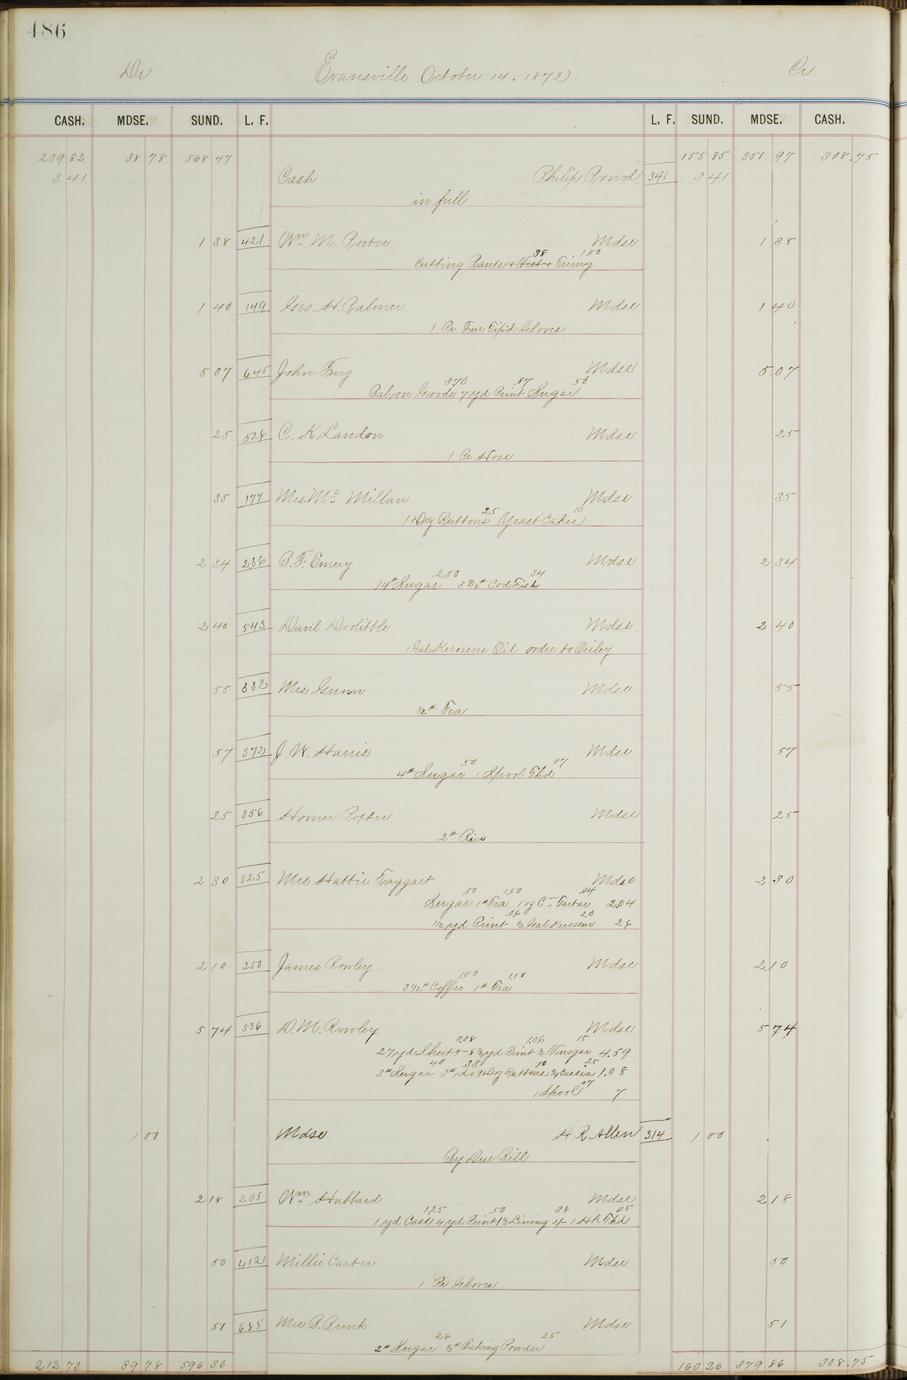 486
Dr Evansville October 14. 1872 Cr
CASH. MDSE. SUND. L. F. L. F. SUND. MDSE. CASH.
209 32 38 78 568 47 155 85 351 97 308.75
3 41 Cash Philip 341 3 41
in full
1 38 421 Wm M. Porter Mdse 1 38
Cutting Pants & Vest 38 1 00
1 40 149 Geo. H. Palmer Mdse 1 40
1 Pr Fur Tip'd Gloves
5 07 645 John Mdse 5 07
Bal on Goods 370 7 yd Print 87 Sugar 50
25 528 C. K. Landon Mdse 25
1 Pr Hose
35 177 Mrs Mc Millan Mdse 35
1 Doz Buttons 25 Yeast Cakes 10
2 34 236 B. F. Emery Mdse 2 34
14# Sugar 2.00 Cod Fish 34
2 40 543 Danl Doolittle Mdse 2 40
1 Gal Kerosene Oil order to
55 332 Mrs Gunn Mdse 55
½# Tea
57 372 J. W. Harris Mdse 57
4# Sugar 50 1 Spool Thd 07
25 356 Homer Potter Mdse 25
2# Rice
2 30 325 Mrs Hattie Taggart Mdse 2 30
Sugar 50 1# Tea 1.50 1 oz Cr Tartar .04 2.04
½ yd Print .06 Gal Kerosene 20 26
2 10 250 James Rowley Mdse 2.10
3½# Coffee 1.00 1# Tea 1.10
5 74 536 D. M. Rowley Mdse 5 74
27 yd 3.38 yd Print 1.06 Vinegar 15 4.59
3# Sugar 40 Doz Buttons 10 25 1.08
1 Spool 07 7
1 00 Mdse H. R. Allen 314 1 00
By Due Bill
2 18 205 Wm Hubbard Mdse 2 18
1 yd Cass 1.25 4 yd Print 50 Lining 38 Thd 05
50 412 Millie Carter Mdse 50
1 Pr Gloves
51 685 Mrs B. Brink Mdse 51
2# Sugar 26 Baking Powder 25
212 73 39 78 596 36 160 26 379 86 308.75